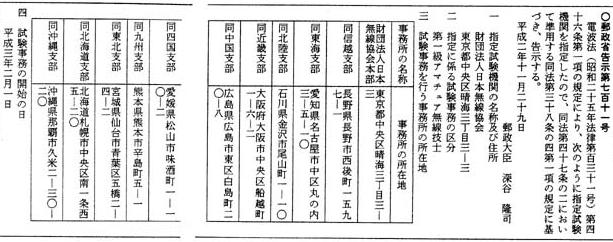 〇郵政省告示第七百十一号
電波法（昭和二十五年法律第百三十一号）第四
十六条第一項の規定により、次のように指定試験
機関を指定したので、同法第四十七条の二におい
て準用する同法第三十八条の四第一項の規定に基
づき、告示する。
平成二年十一月二十九日
郵政大臣　深谷　隆司
一　指定試験機関の名称及び住所
財団法人日本無線協会
東京都中央区晴海三丁目三―三
二　指定に係る試験事務の区分
第一級アマチュア無線技士
三　試験事務を行う事務所の所在地
事務所の名称　事務所の所在地
財団法人日本
無線協会本部　東京都中央区晴海三丁目三―
三
同信越支部　長野県長野市西後町一五九
七―一
同東海支部　愛知県名古屋市中区丸の内
三―五―一〇
同北陸支部　石川県金沢市尾山町一―一〇
同近畿支部　大阪府大阪市中央区船越町
一―六―一二
同中国支部　広島県広島市東区白島町二
〇―八
同四国支部　愛媛県松山市味酒町一―一
〇―二
同九州支部　熊本県熊本市辛島町五―一
同東北支部　宮城県仙台市青葉区五橋二―
四
同北海道支部　北海道札幌市中央区南一条西
二〇
同沖縄支部　沖縄県那覇市久米二―三〇―
二〇
四　試験事務の開始の日
平成三年二月一日